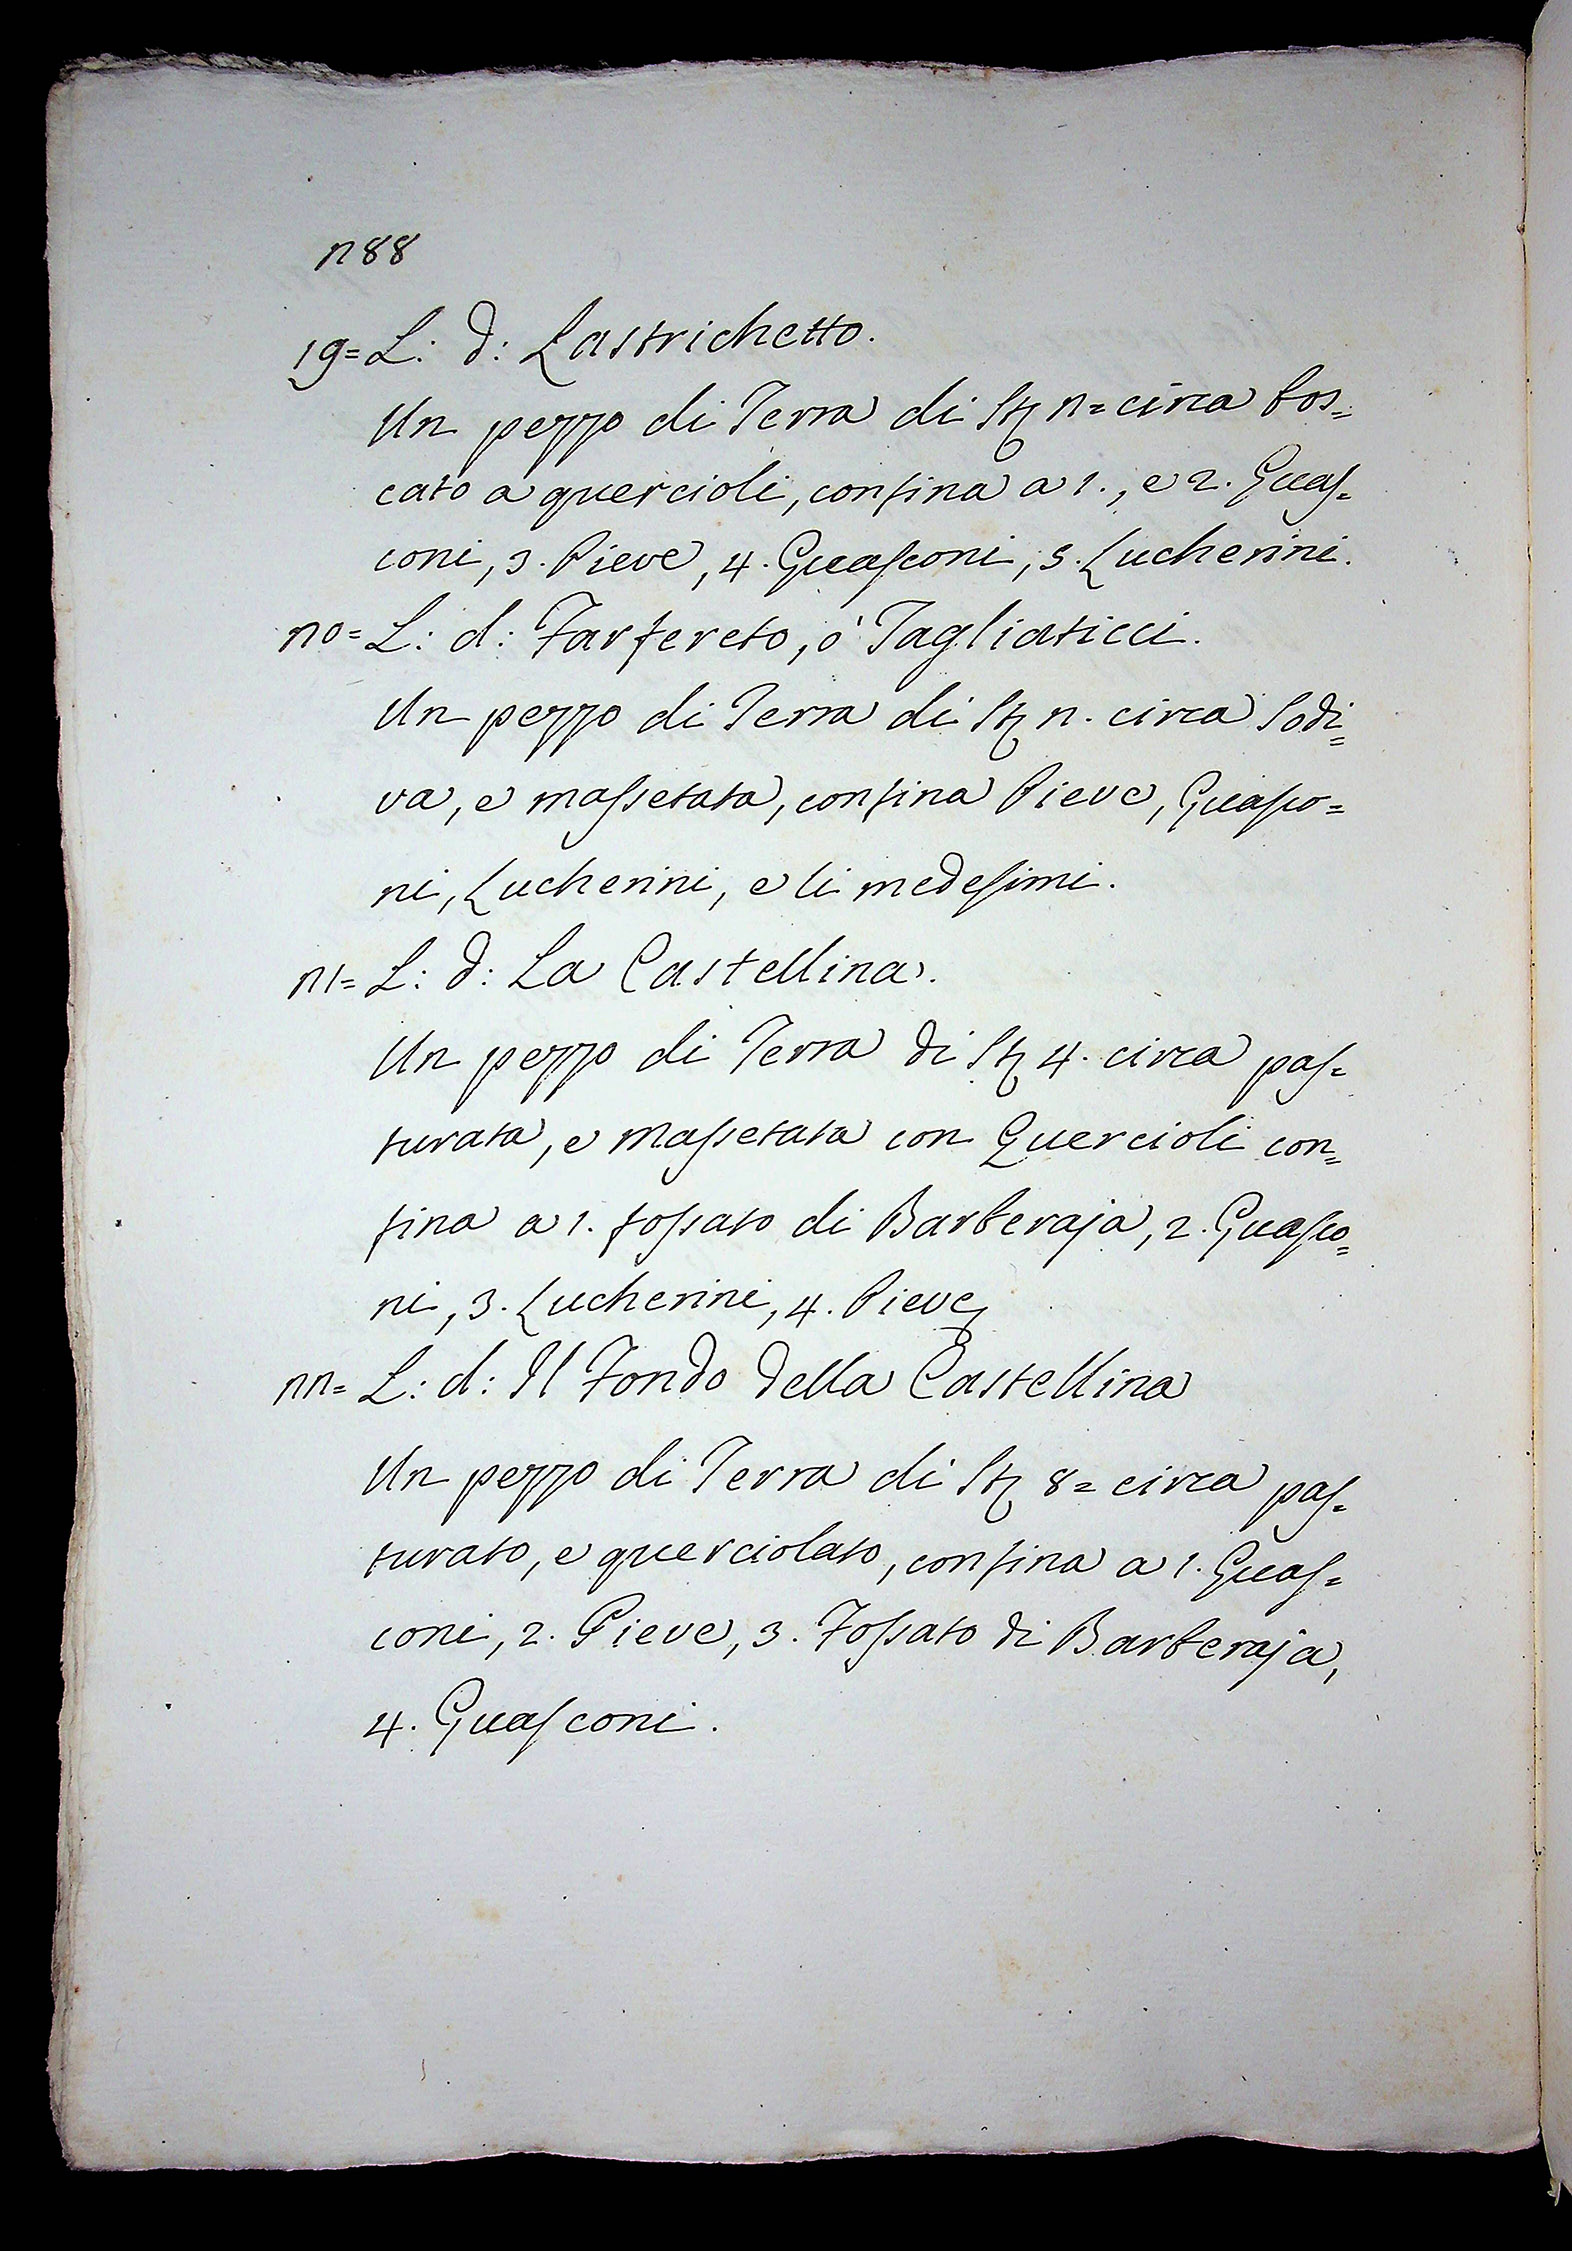 288
19= L: d: Lastrichetto.
Un pezzo di Terra di St 2= circa bos=
cato a quercioli, confina a 1., e 2. Guas=
coni, 3. Pieve, 4. Guasconi, 5. Lucherini.
20= L: d: Farfereto, ò Tagliaticci.
Un pezzo di Terra di St 2. circa sodi=
va, e massetata, confina Pieve, Guasco=
ni, Lucherini, e li medesimi.
21= L: d: La Castellina.
Un pezzo di Terra di St 4. circa pas=
turata, e massetata con Quercioli con=
fina a 1. fossato di Barberaja, 2. Guasco=
ni, 3. Lucherini, 4. Pieve
22= L: d: Il Fondo della Castellina
Un pezzo di Terra di St 8= circa pas=
turato, e querciolato, confina a 1. Guas=
coni, 2. Pieve, 3. Fossato di Barberaja,
4. Guasconi.